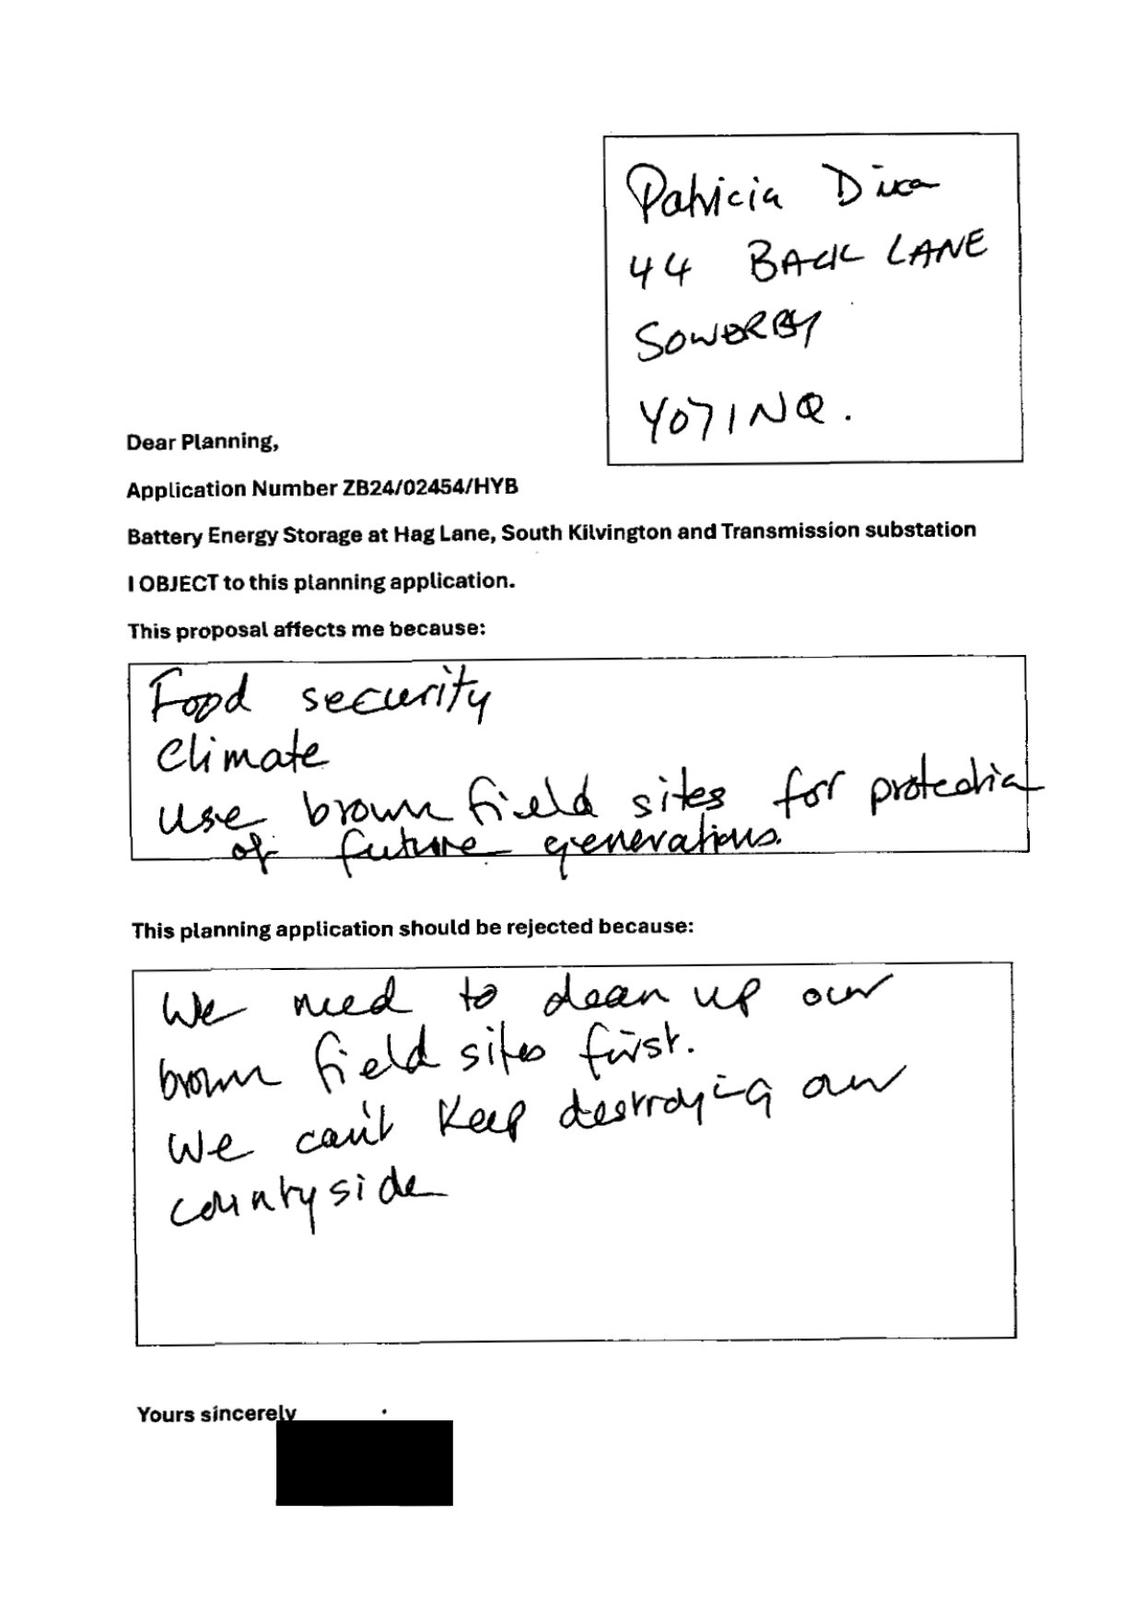 Patricia
44 BACK LANE
SOWERBY
YO71NQ.
Dear Planning,
Application Number ZB24/02454/HYB
Battery Energy Storage at Hag Lane, South Kilvington and Transmission substation
I OBJECT to this planning application.
This proposal affects me because:
Food security
Climate
use brown field sites for protection
of future generations.
This planning application should be rejected because:
We need to clean up our
brown field sites first.
We can't keep destroying our
countryside
Yours sincerely